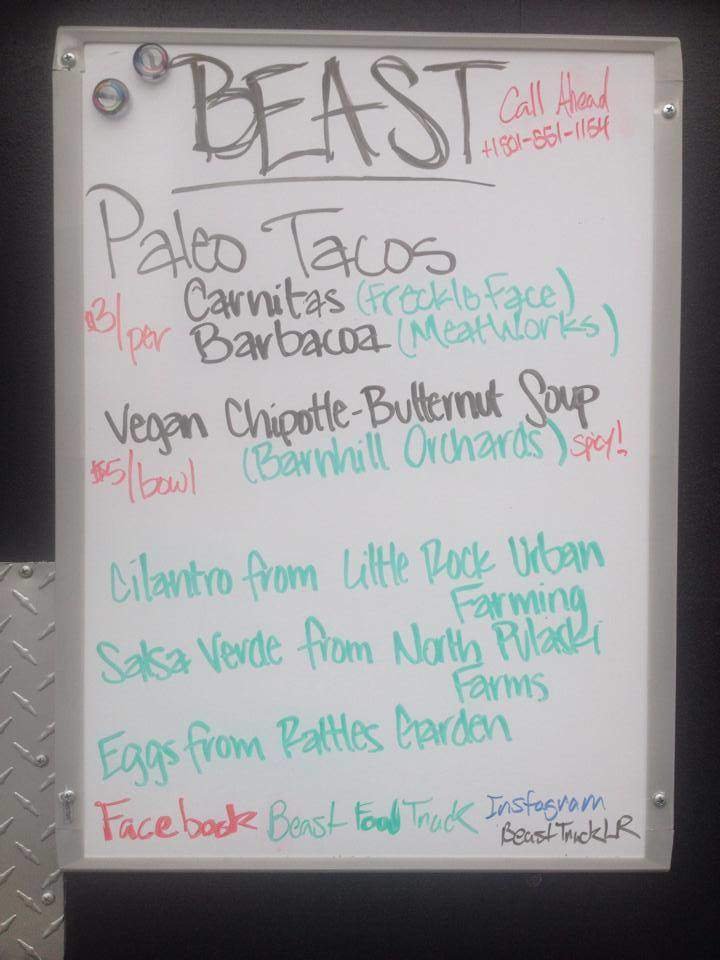 BEAST
Call Ahead
+1501-551-1154
Paleo Tacos
$3/per
Carnitas (Freckle Face)
Barbacoa (MeatWorks)
Vegan Chipotle-Butternut Soup
$5/bowl
(Barnhill Orchards) spicy!
Cilantro from Little Rock Urban
Farming
Salsa Verde from North Pulaski
Farms
Eggs from Rattles Garden
Facebook Beast Food Truck Instagram
BeastTruckLR